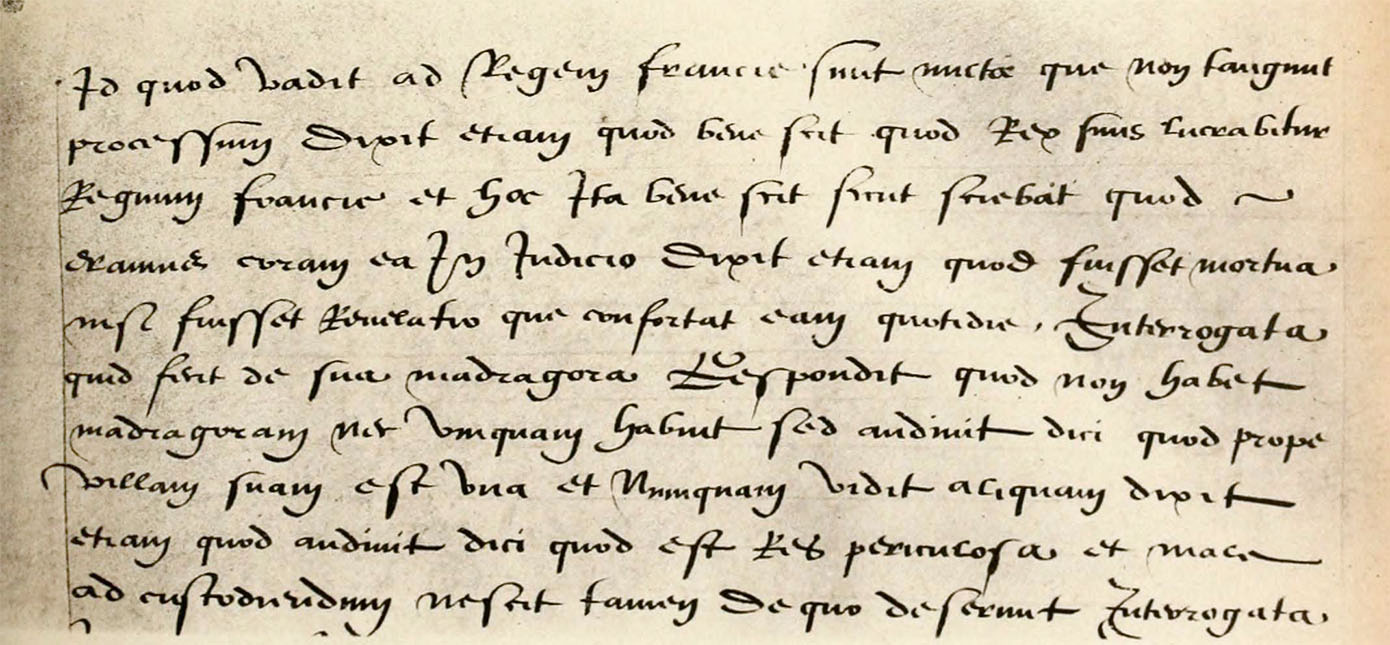 Id quod vadit ad Regem francie sunt multa que non tangunt
processum Dixit etiam quod bene scit quod Rex suus lucrabitur
Regnum francie et hoc Ita bene scit sicut sciebat quod
eramus coram ea In Iudicio Dixit etiam quod fuisset mortua
nisi fuisset Revelatio que confortat eam quotidie. Interrogata
quid fecit de sua madragora Respondit quod non habet
madragoram nec vnquam habuit sed audiuit dici quod prope
villam suam est vna et Nunquam vidit aliquam dixit
etiam quod audiuit dici quod est Res periculosa et male
ad custodiendum nescit tamen De quo deseruit Interrogata